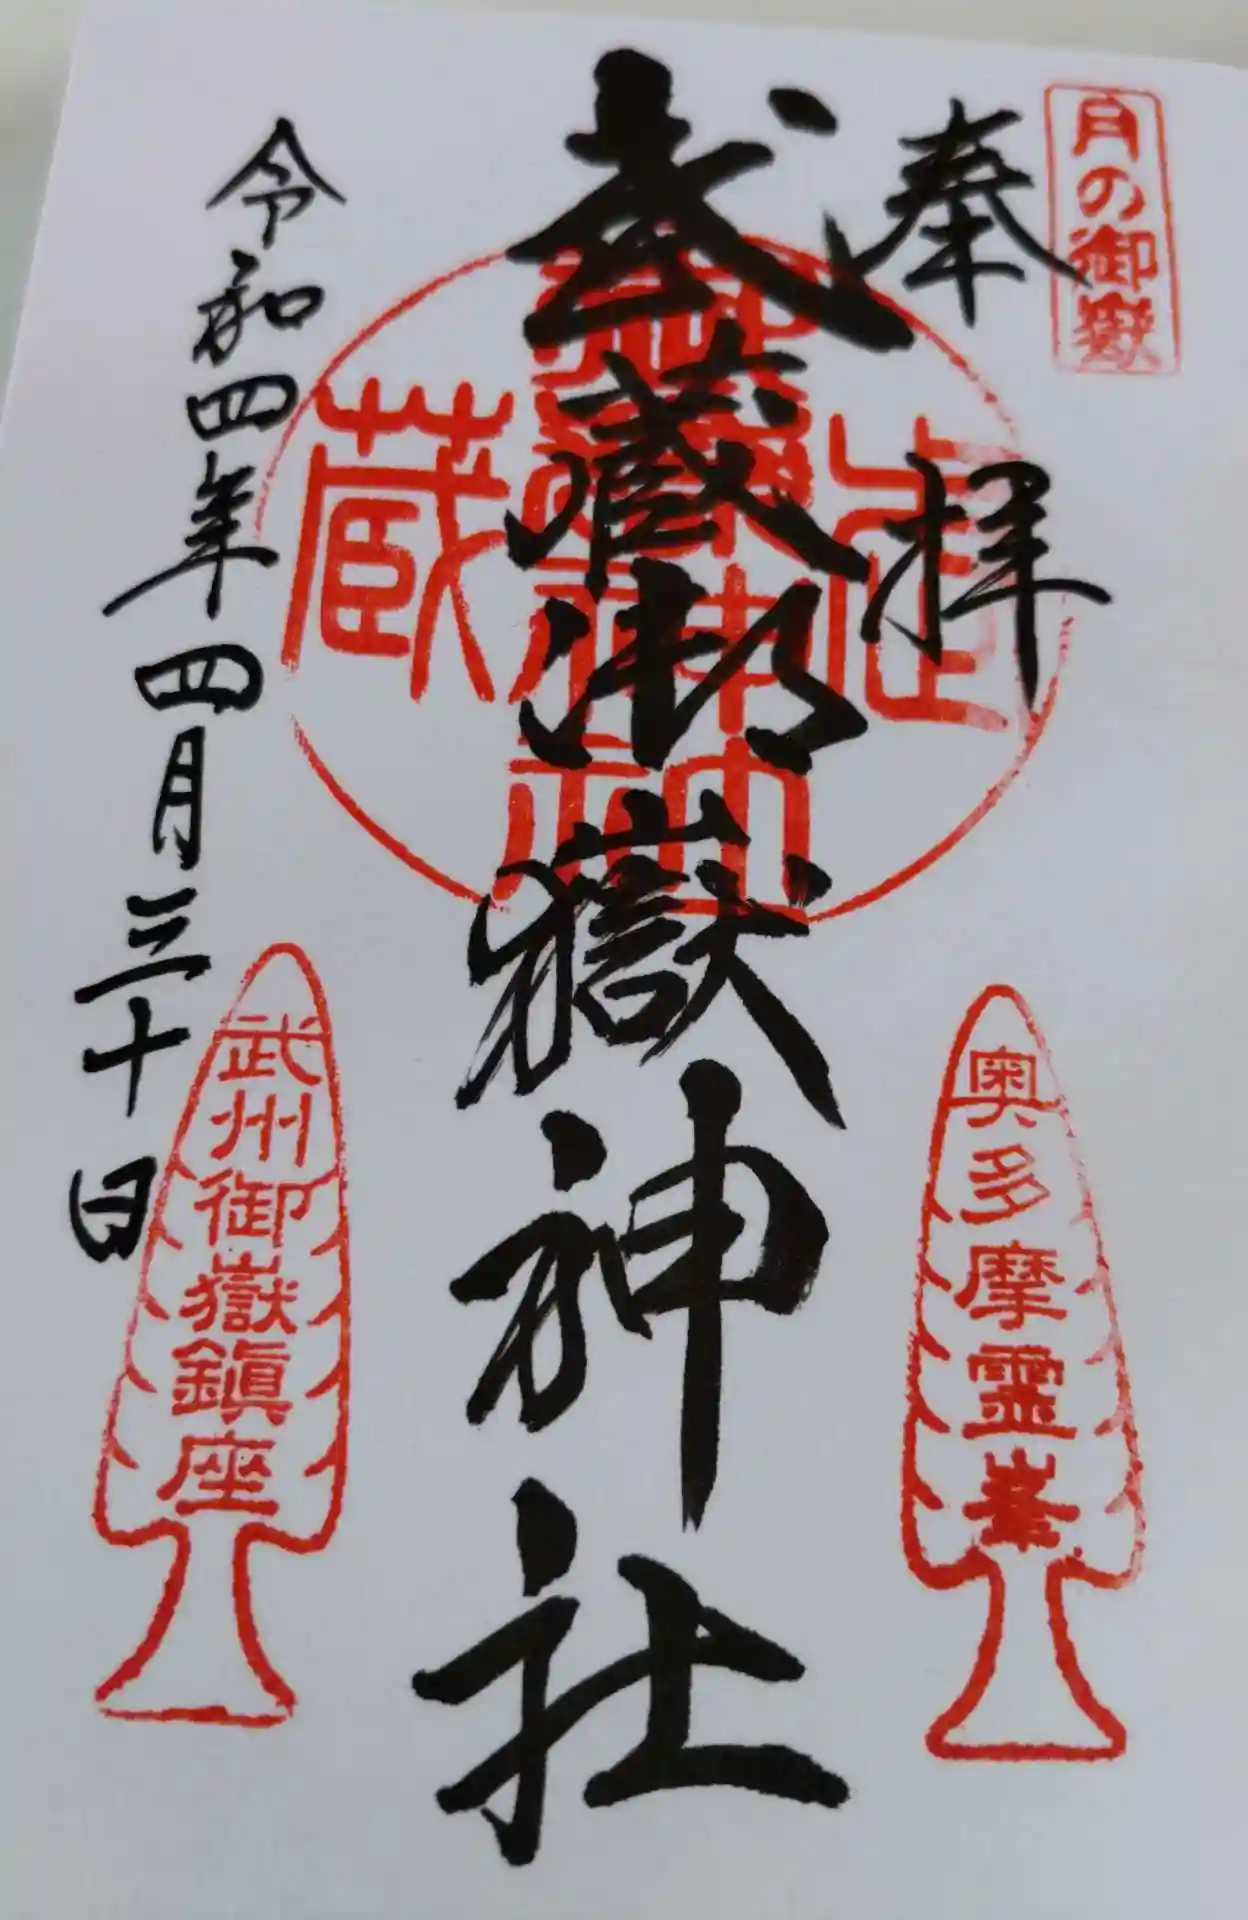 月の御嶽
奉拝
武蔵御嶽神社
令和四年四月三十日
武
蔵
奥多摩霊峯
武州御嶽鎮座